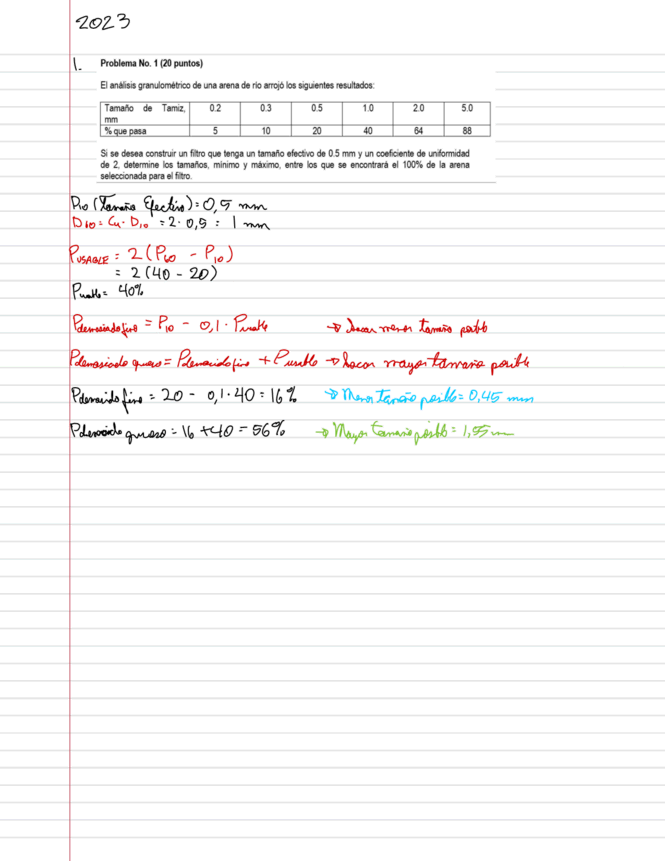 2023
1. Problema No. 1 (20 puntos)
El análisis granulométrico de una arena de río arrojó los siguientes resultados:
Tamaño de Tamiz, mm 0.2 0.3 0.5 1.0 2.0 5.0
% que pasa 5 10 20 40 64 88
Si se desea construir un filtro que tenga un tamaño efectivo de 0.5 mm y un coeficiente de uniformidad
de 2, determine los tamaños, mínimo y máximo, entre los que se encontrará el 100% de la arena
seleccionada para el filtro.
D10 (Tamaño Efectivo) = 0,5 mm
D60 = Cu · D10 = 2 · 0,5 = 1 mm
PUSABLE = 2 (P60 - P10)
= 2 (40 - 20)
Pusable = 40%
Pdemasiado fino = P10 - 0,1 · Pusable → sacar menor tamaño posible
Pdemasiado grueso = Pdemasiado fino + Pusable → sacar mayor tamaño posible
Pdemasiado fino = 20 - 0,1 · 40 = 16% → Menor tamaño posible = 0,45 mm
Pdemasiado grueso = 16 + 40 = 56% → Mayor tamaño posible = 1,55 mm